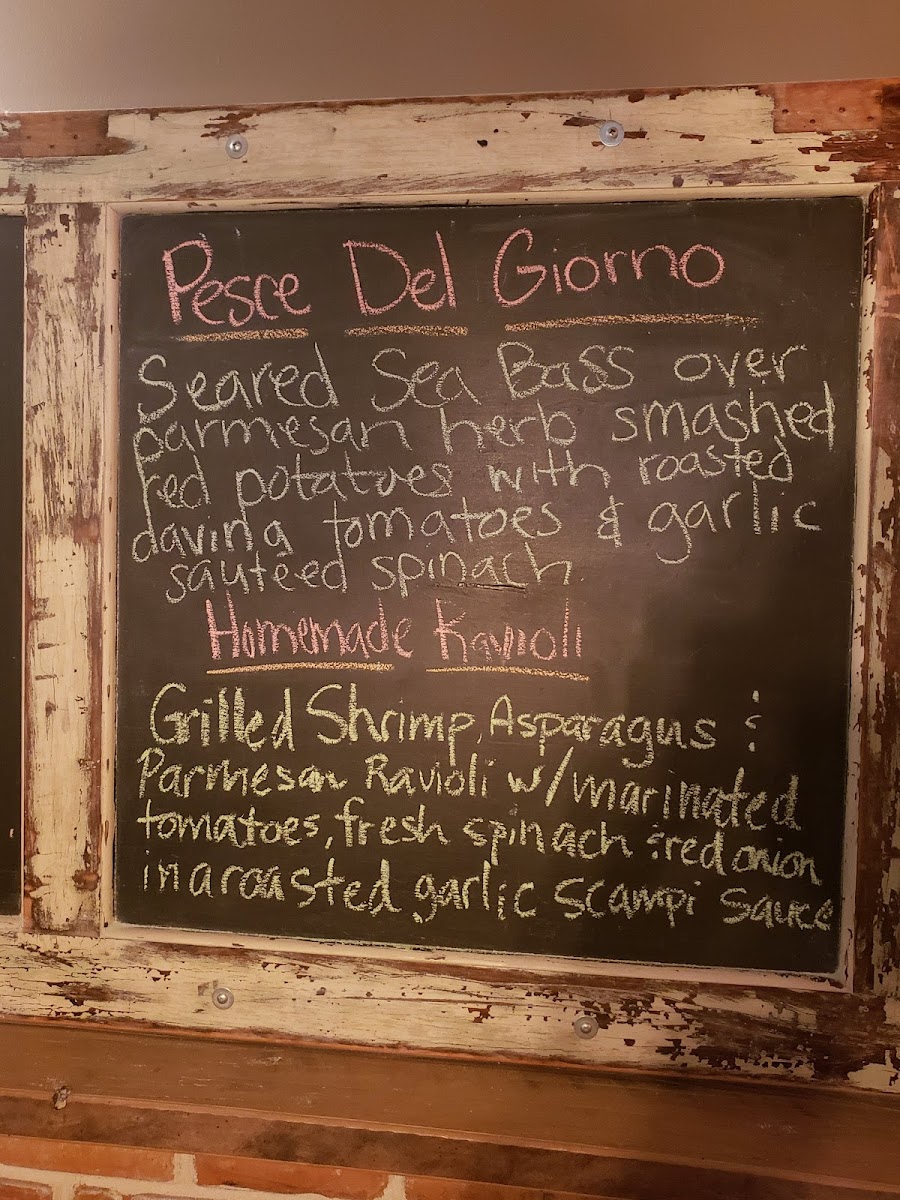 Pesce Del Giorno
Seared Sea Bass over
parmesan herb smashed
red potatoes with roasted
daving tomatoes & garlic
sauteed spinach
Homemade Ravioli
Grilled Shrimp, Asparagus &
Parmesan Ravioli w/marinated
tomatoes, fresh spinach & red onion
in a roasted garlic scampi sauce